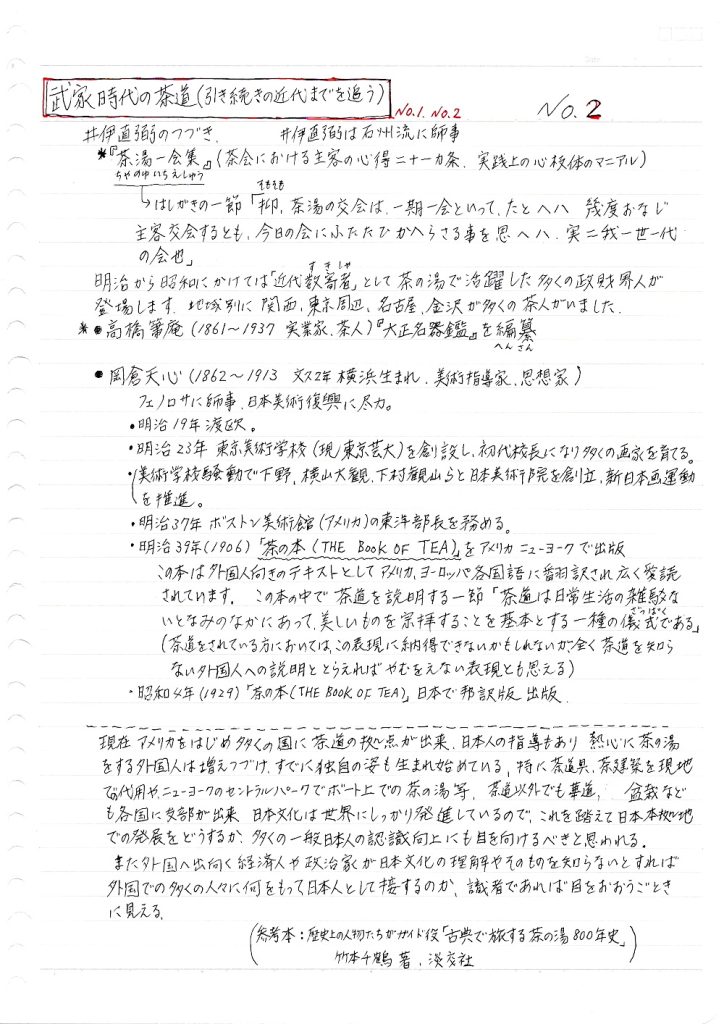 武家時代の茶道(引き続きの近代までを追う) No.1. No.2 No.2
井伊直弼のつづき. 井伊直弼は石州流に師事
*『茶湯一会集』(茶会における主客の心得二十一カ条. 実践上の心技体のマニアル)
ちゃのゆいちえしゅう そもそも
はしがきの一節「抑、茶湯の交会は、一期一会といって、たとヘハ 幾度おなじ
主客交会するとも、今日の会にふたたびかへらさる事を思ヘハ、実ニ我一世一代
の会也」
すきしゃ
明治から昭和にかけては「近代数寄者」として茶の湯で活躍した多くの政財界人が
登場します. 地域別に関西、東京周辺、名古屋、金沢が多くの茶人がいました.
*●高橋箒庵(1861〜1937 実業家、茶人)『大正名器鑑』を編纂
へんさん
●岡倉天心(1862〜1913 文久2年横浜生まれ、美術指導家、思想家)
フェノロサに師事、日本美術復興に尽力。
・明治19年渡欧。
・明治23年 東京美術学校(現/東京芸大)を創設し、初代校長になり多くの画家を育てる。
・美術学校騒動で下野、横山大観、下村観山らと日本美術院を創立、新日本画運動
を推進。
・明治37年 ボストン美術館(アメリカ)の東洋部長を務める。
・明治39年(1906)「茶の本(THE BOOK OF TEA)」をアメリカ ニューヨークで出版
この本は外国人向きのテキストとしてアメリカ、ヨーロッパ各国語に翻訳され広く愛読
されています. この本の中で茶道を説明する一節「茶道は日常生活の雑駁な
ざっぱく
いとなみのなかにあって、美しいものを崇拝することを基本とする一種の儀式である」
(茶道をされている方においては、この表現に納得できないかもしれないが全く茶道を知ら
ない外国人への説明ととらえればやむをえない表現とも思える)
・昭和4年(1929)「茶の本(THE BOOK OF TEA)」日本で邦訳版 出版.
現在 アメリカをはじめ多くの国に茶道の拠点が出来、日本人の指導もあり 熱心に茶の湯
をする外国人は増えつづけ、すでに独自の姿も生まれ始めている, 特に茶道具、茶建築を現地
での代用や、ニューヨークのセントラルパークでボート上での茶の湯等. 茶道以外でも華道, 盆栽など
も各国に支部が出来 日本文化は世界にしっかり発進しているので、これを踏えて日本本拠地
での発展をどうするか、多くの一般日本人の認識向上にも目を向けるべきと思われる.
また外国へ出向く経済人や政治家が日本文化の理解やそのものを知らないとすれば
外国での多くの人々に何をもって日本人として接するのか, 識者であれば目をおおうごとき
に見える.
(参考本:歴史上の人物たちがガイド役「古典で旅する茶の湯800年史」
竹本千鶴 著. 淡交社)